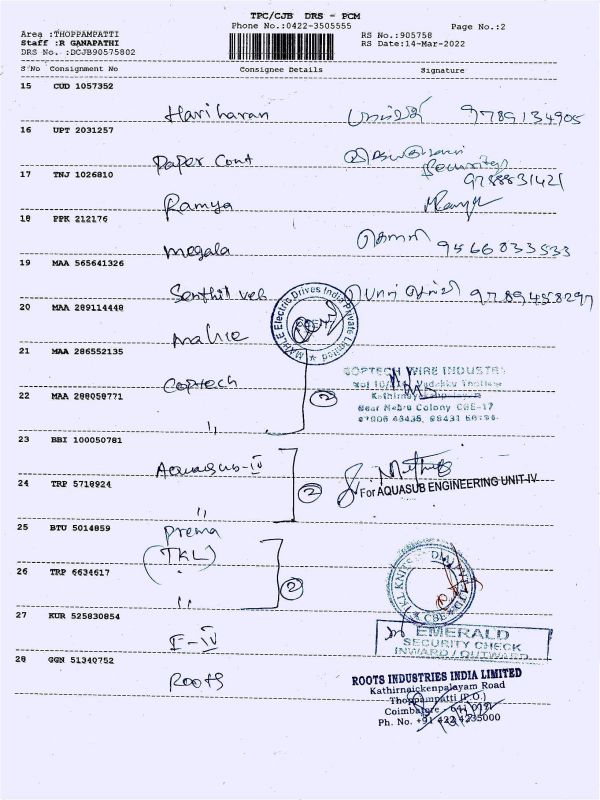 TPC/CJB DRS - PCM
Phone No.:0422-3505555
Page No.:2
Area :THOPPAMPATTI
Staff :R GANAPATHI
DRS No. :DCJB90575802
RS No.:905758
RS Date:14-Mar-2022
S'No Consignment No Consignee Details Signature
15 CUD 1057352
Hariharan 9789134905
16 UPT 2031257
Paper Cont
Security
17 TNJ 1026810
9788831421
Ramya
18 PPK 212176
Megala 9566833533
19 MAA 565641326
Senthil vel 9789458297
20 MAA 289114448
Mahle
MAHLE Electric Drives India Private Limited
21 MAA 286552135
Coptech
COPTECH WIRE INDUSTR
Vadakku Thottam
Kathirnaickenpalayam
Near Nehru Colony CBE-17
22 MAA 288058771
〃
2
23 BBI 100050781
Aquasub-IV
24 TRP 5718924
〃
2
For AQUASUB ENGINEERING UNIT-IV
25 BTU 5014859
Prema
(TKL)
26 TRP 6634617
〃
2
CBE
27 KUR 525830854
E-IV
EMERALD
SECURITY CHECK
INWARD / OUTWARD
28 GGN 51340752
Roots
ROOTS INDUSTRIES INDIA LIMITED
Kathirnaickenpalayam Road
Thoppampatti (P.O.)
Coimbatore - 641 017
Ph. No. +91 422 4235000